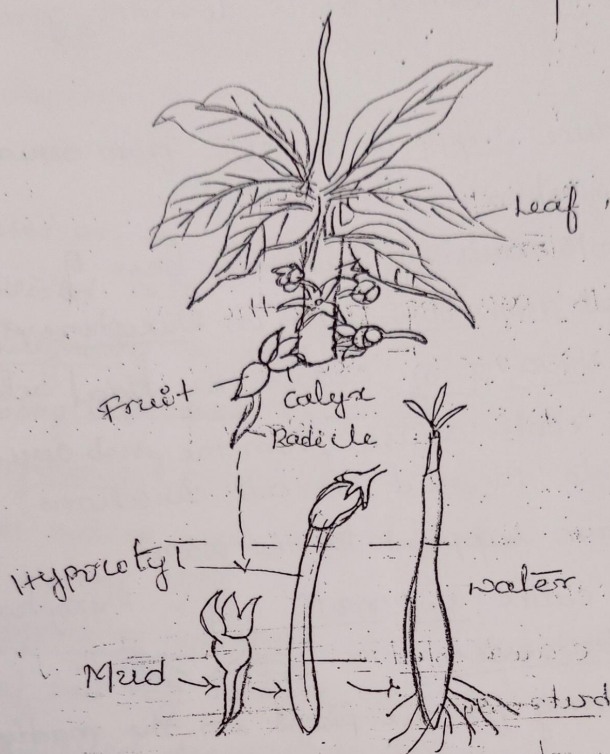 Leaf
Fruit
Calyx
Radicle
Hypocotyl
water
Mud